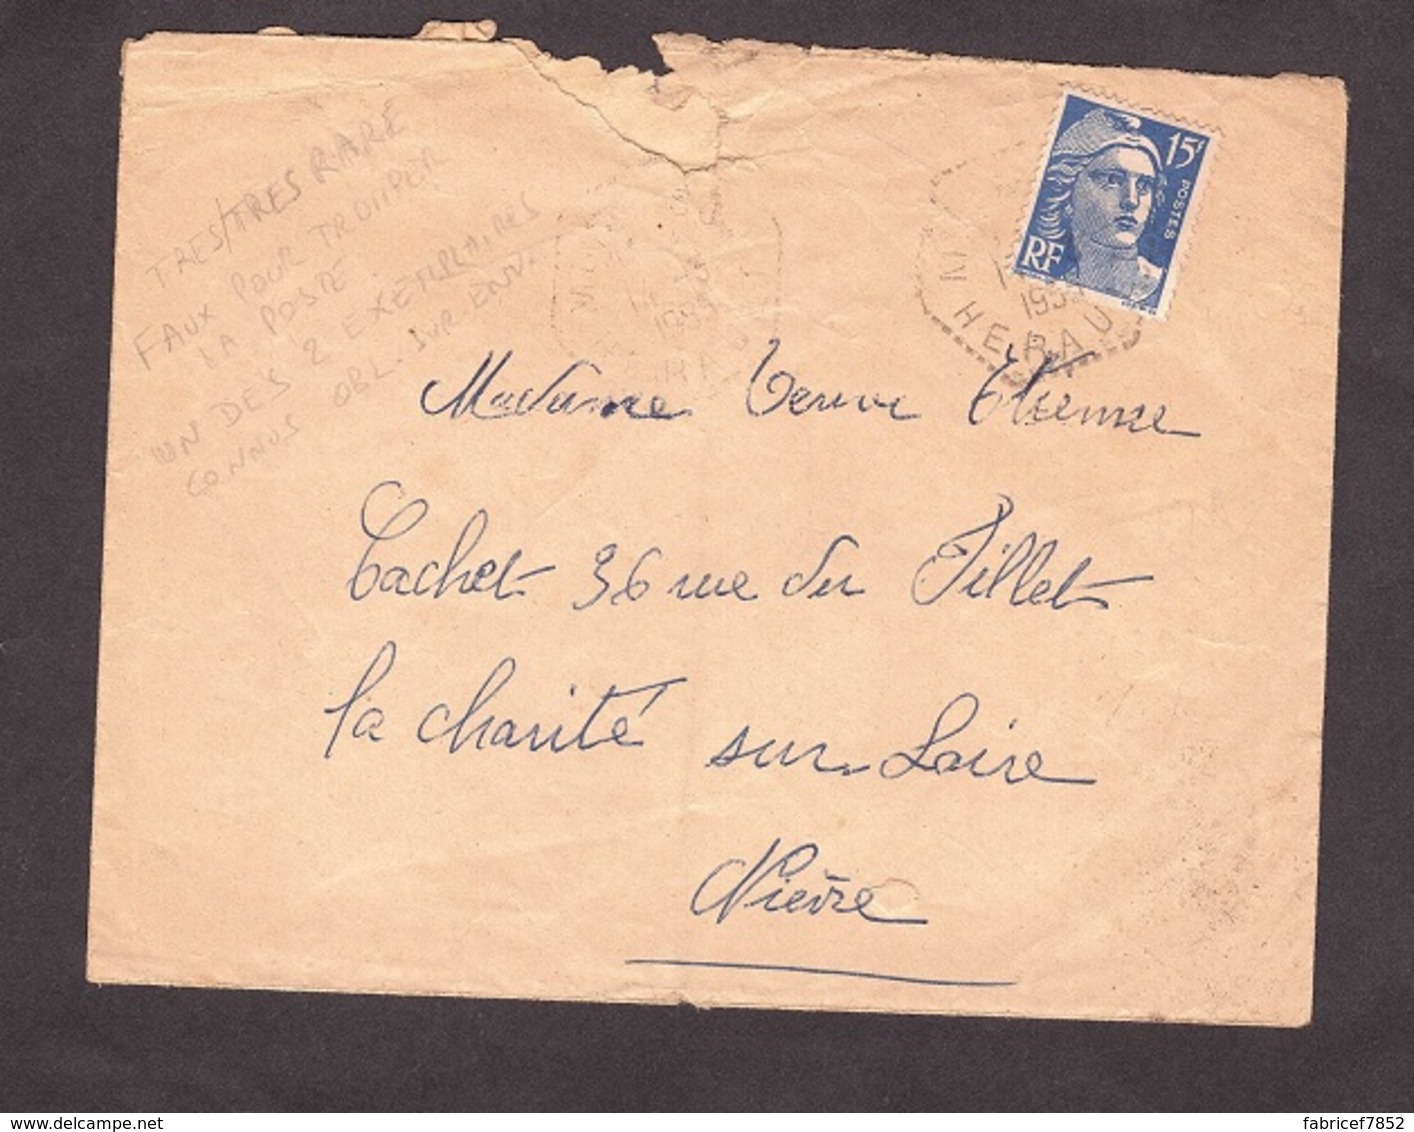 TRES/TRES RARE
FAUX POUR TROMPER
LA POSTE
UN DES 2 EXEMPLAIRES
CONNUS OBL. SUR ENV.
15f
POSTES
RF
1955
HERAU
Madame Veuve Etienne
Cachet 36 rue du Tillet
la charité sur-Loire
Nièvre
delcampe.net
fabricef7852